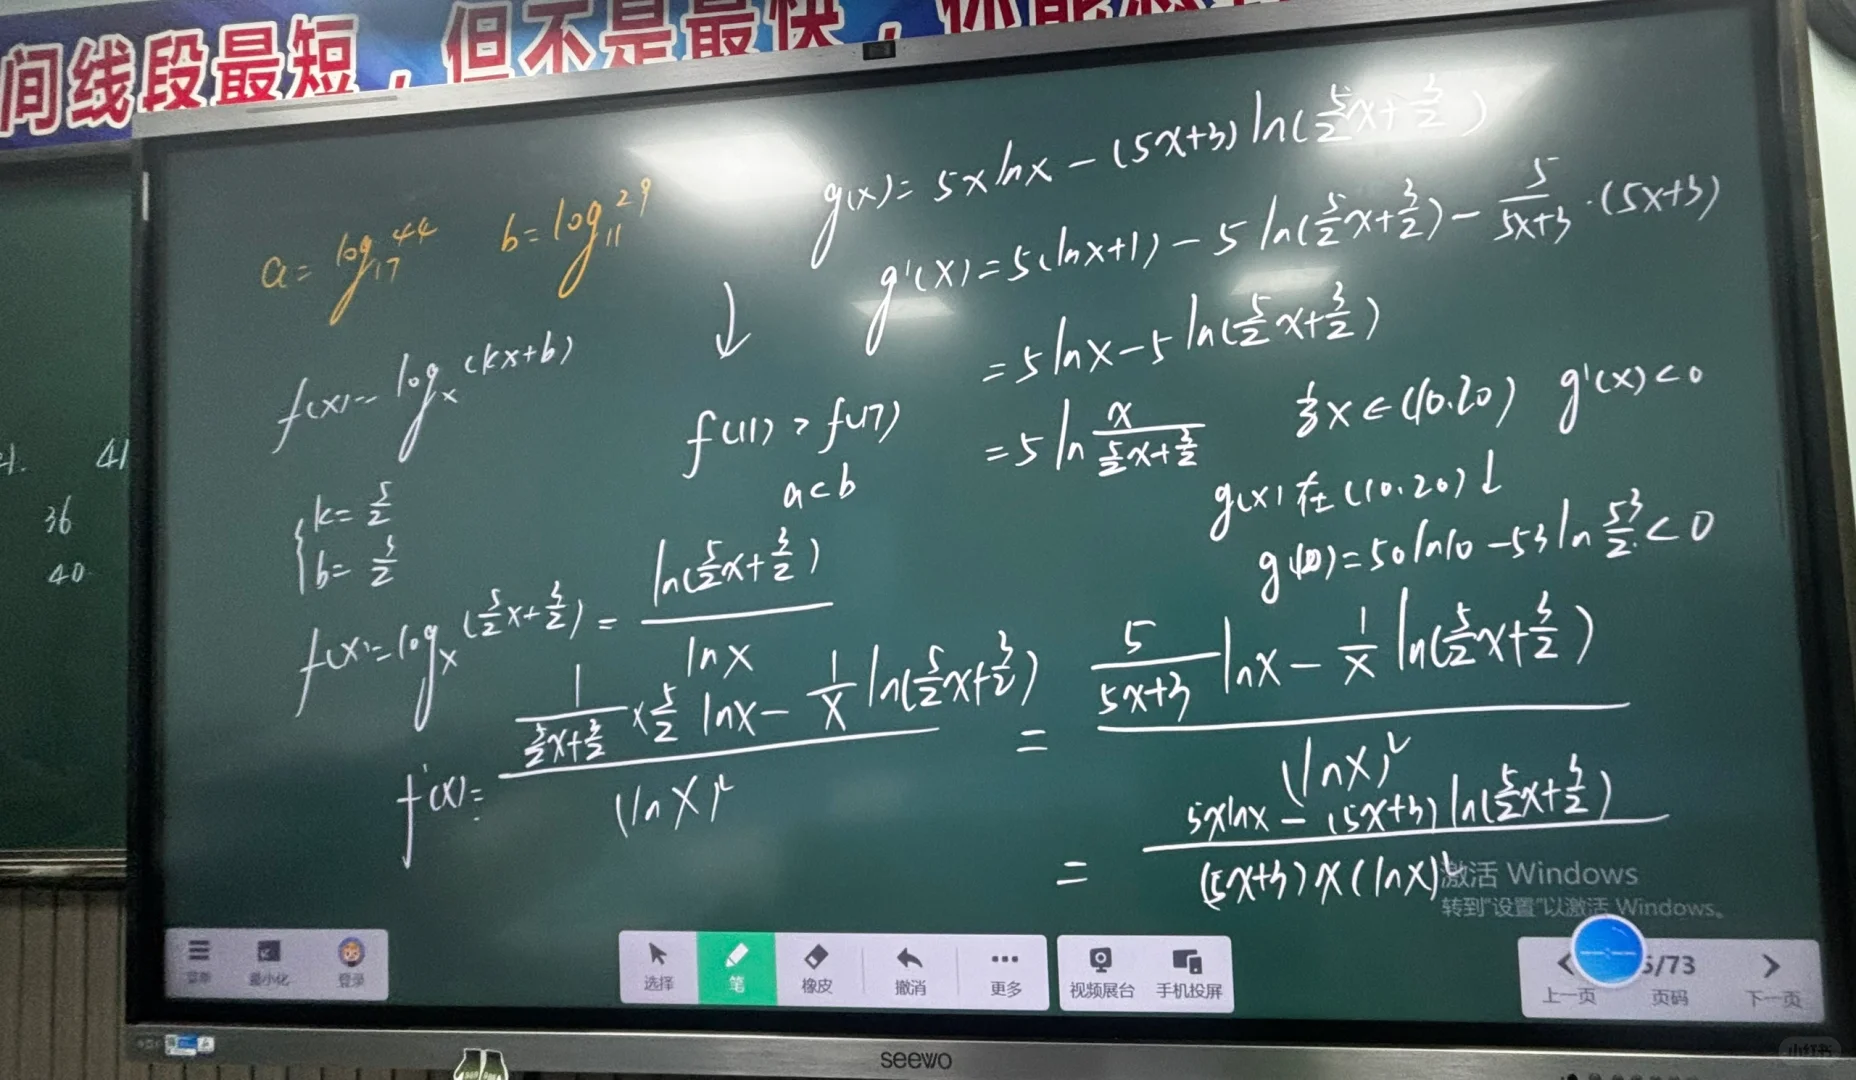 间线段最短，但不是最快，
a = log₁₇⁴⁴ b = log₁₁²⁹
f(x) = logₓ(kx+b)
{k = 5/2
b = 3/2
↓
f(11) > f(17)
a < b
f(x) = logₓ(5/2x+3/2) = ln(5/2x+3/2) / lnx
f'(x) = (1/(5/2x+3/2) × 5/2 lnx − 1/x ln(5/2x+3/2)) / (lnx)²
= (5/(5x+3) lnx − 1/x ln(5/2x+3/2)) / (lnx)²
= (5xlnx − (5x+3) ln(5/2x+3/2)) / ((5x+3)x(lnx)²)
g(x) = 5xlnx − (5x+3) ln(5/2x+3/2)
g'(x) = 5(lnx+1) − 5 ln(5/2x+3/2) − 5/(5x+3) · (5x+3)
= 5 lnx − 5 ln(5/2x+3/2)
= 5 ln x/(5/2x+3/2)
当x∈(10.20) g'(x)<0
g(x)在(10.20)↓
g(10) = 50ln10 − 53ln 53/2 < 0
41
36
40
激活 Windows
转到"设置"以激活 Windows。
菜单
最小化
登录
选择
笔
橡皮
撤消
更多
视频展台
手机投屏
5/73
上一页
页码
下一页
seewo
小红书